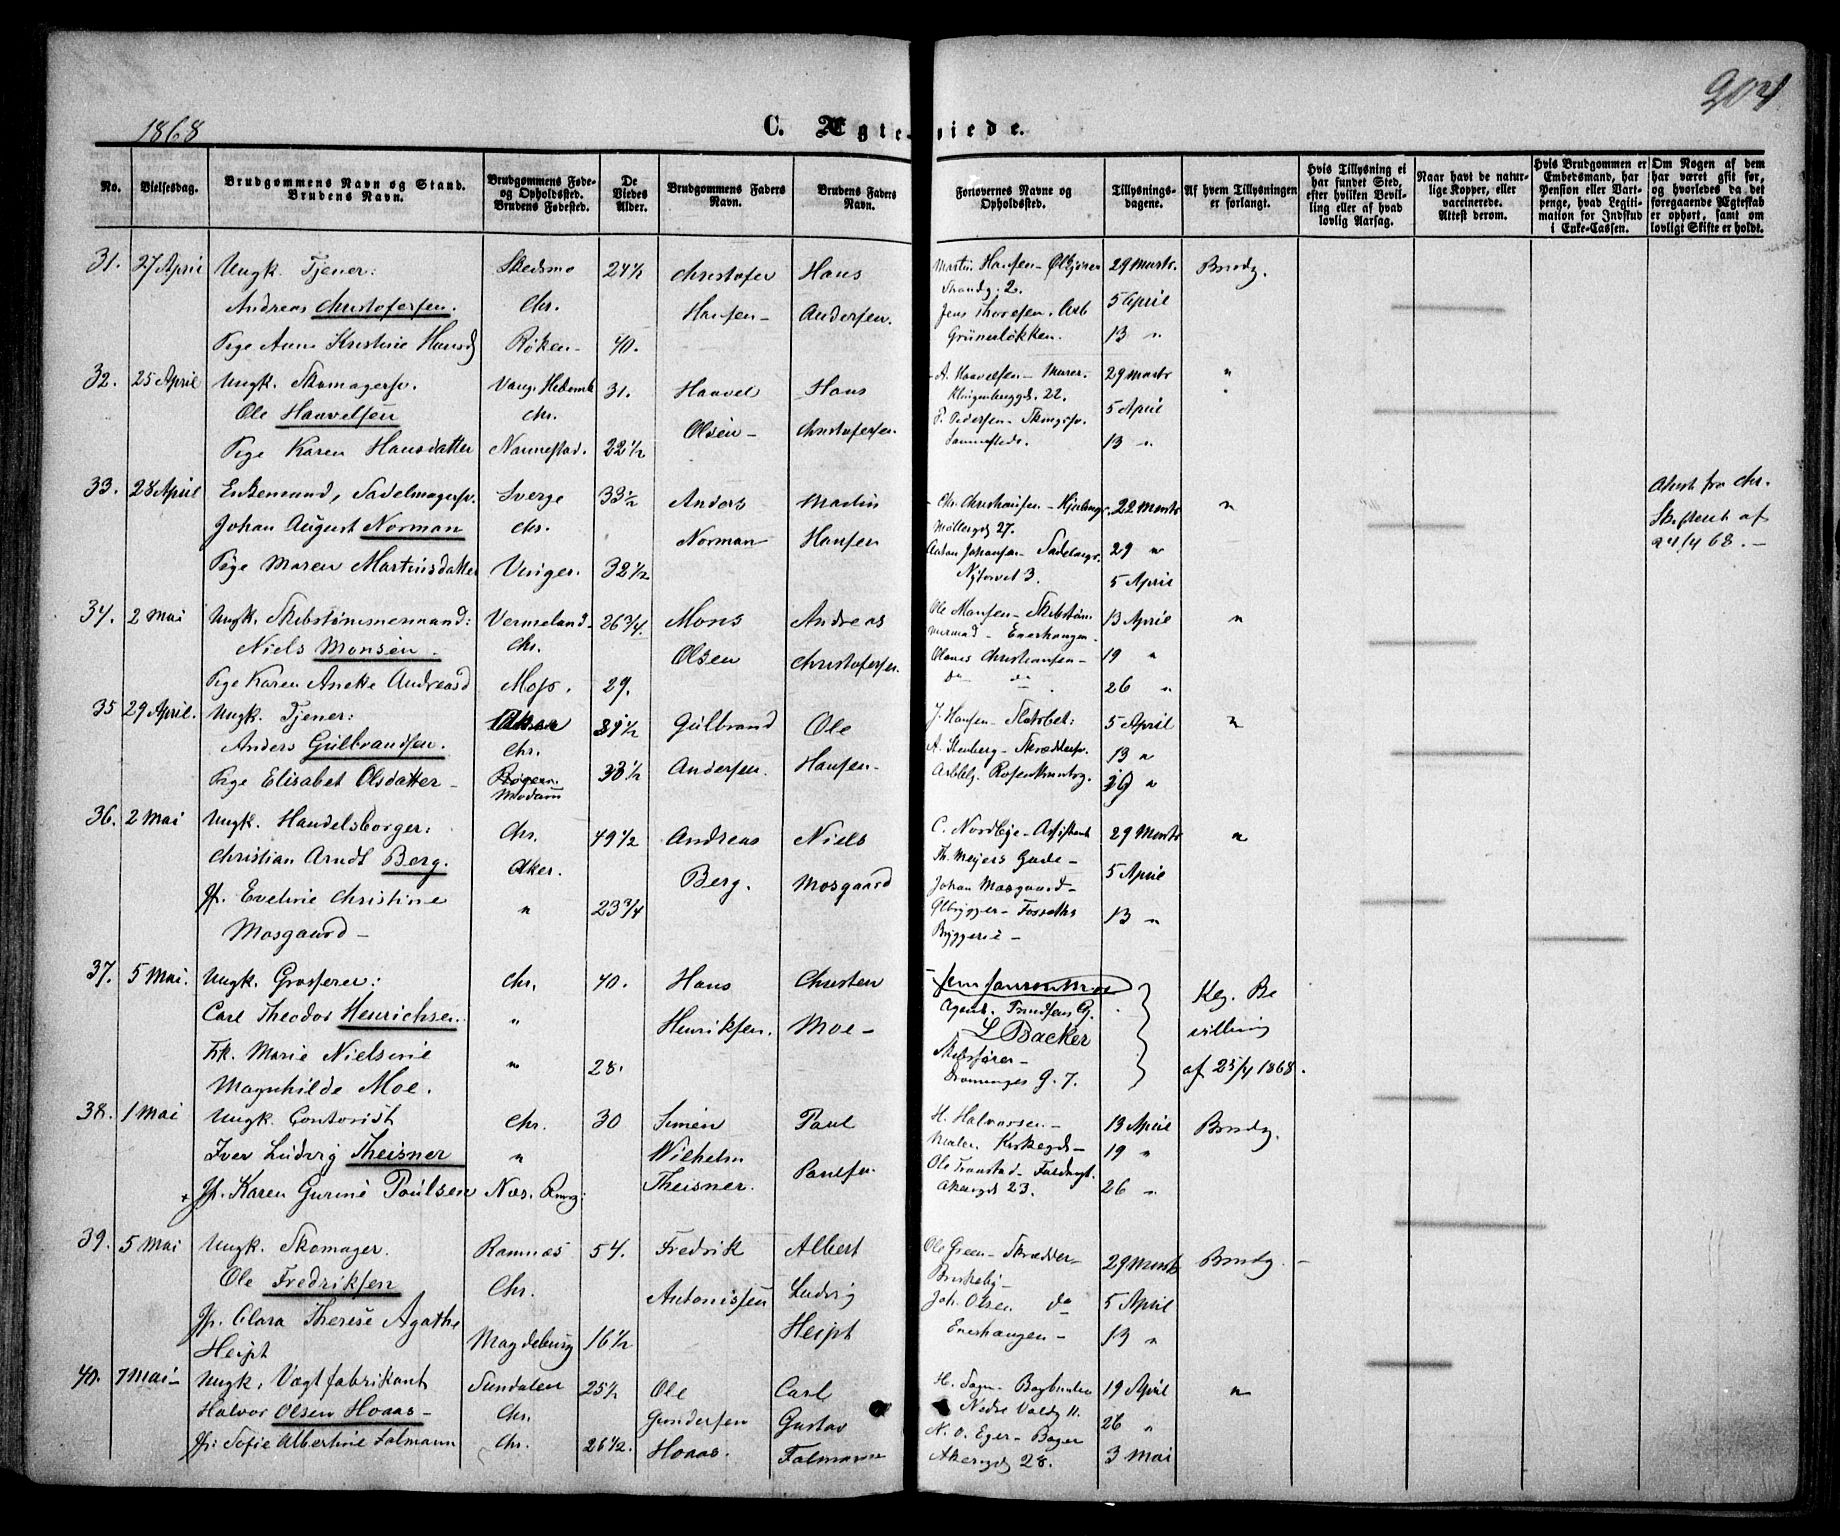 1868
C. Ægteviede.
No.
Vielsesdag.
Brudgommens Navn og Stand.
Brudens Navn.
Brudgommens Føde-
og Opholdssted.
Brudens Fødested.
De
Viedes
Alder.
Brudgommens Faders
Navn.
Brudens Faders
Navn.
Forlovernes Navne og
Opholdssted.
Tillysnings-
dagene.
Af hvem Tillysningen
er forlangt.
Hvis Tillysning ei
har fundet Sted,
efter hvilken Bevil-
ling eller af hvad
lovlig Aarsag.
Naar havt de natur-
lige Kopper, eller
vaccinerede.
Attest derom.
Hvis Brudgommen er
Embedsmand, har
Pension eller Vart-
penge, hvad Legiti-
mation for Indskud
i Enke-Cassen.
Om Nogen af dem
har været gift før,
og hvorledes da det
foregaaende Ægteskab
er ophørt, samt om
lovligt Skifte er holdt.
31. 27 April Ungk. Tjener: Skedsmo 24½ Christofer Hans Martin Hansen 29 Marts. Brudg.
Andreas Christofersen. Chr. Hansen Andersen. 5 April
Pige Anne Kristine Hansd Røken 40. Grünerløkken. 13 "
32. 25 April Ungk. Skomagersv. Vang Hedemk 31. Haavel Hans A. Haavelsen Murer. 29 Marts "
Ole Haavelsen Chr. Olsen Christofersen 22. 5 April
Pige Karen Hansdatter Nannestad. 22½ P. Pedersen 13 "
33. 28 April Enkemand, Sadelmagersv. Sverge 33½ Anders Martin Chr. Christiansen 22 Marts " Attest fra Chr.
Johan August Norman Chr. Norman Hansen Møllergd 27. Skifteret af
Pige Maren Martinsdatter Vinger. 32½ Anton Johansen 29 " 24/4 68.
Nytorvet 3. 5 April
34. 2 Mai Ungk. Skibstømmermand: Vermeland 26¾. Mons Andreas Ole Monsen 13 April "
Niels Monsen. Chr. Olsen Christofersen. Enerhaugen
Pige Karen Anette Andreasd Moss. 29. Christiansen 19 "
do do 26 "
35 29 April. Ungk. Tjener: Aker 31½ Gulbrand Ole J. Hansen 5 April "
Anders Gulbrandsen. Chr. Andersen. Hansen A. Stenberg Skrædersv. 13 "
Pige Elisabet Olsdatter Modum 33½ 19 "
36. 2 Mai Ungk. Handelsborger: Chr. 49½ Andreas Niels C. Nordbye 29 Marts "
Christian Arndt Berg. Aker. Berg. Mosgaard Th. Meyers Gade 5 April
Jfr. Eveline Christine " 23¾ Johan Mosgaard
Mosgaard Ølbrygger 13 "
Bryggerie
37. 5 Mai. Ungk. Grosserer: Chr. 40. Hans Christen Kg. Be
Carl Theodor Henrichsen " Henriksen. Moe Agent. villing
Frk. Marie Nielsine " 28. L Backer af 25/4 1868.
Magnhilde Moe. Skibsfører G. 7.
38. 1 Mai Ungk. Contorist Chr. 30 Simen Paul H. Halvorsen 13 April Brudg.
Iver Ludvig Theisner " Wilhelm Paulsen 19 "
Jfr. Karen Gurine Paulsen Næs. Theisner. Akersgd 23. 26 "
39. 5 Mai Ungk. Skomager. Ramnæs 54. Fredrik Albert Ole Green Skrædder 29 Marts Brudg.
Ole Fredriksen Chr. Antonissen Ludvig Briskeby
Jfr. Clara Therese Agathe Heipt Joh. Olsen do 5 April
Heipt Magdeburg 16½ Enerhaugen 13 "
40. 7 Mai Ungk. Vægtfabrikant Sundalen 25½ Ole Carl Bogbinder 19 April "
Halvor Olsen Hoaas Chr. Gundersen Gustav Nedre Voldg 11. 26 "
Jfr: Sofie Albertine Falmann Chr. 26½. Hoaas. Falmann Akersgd 28. 3 Mai